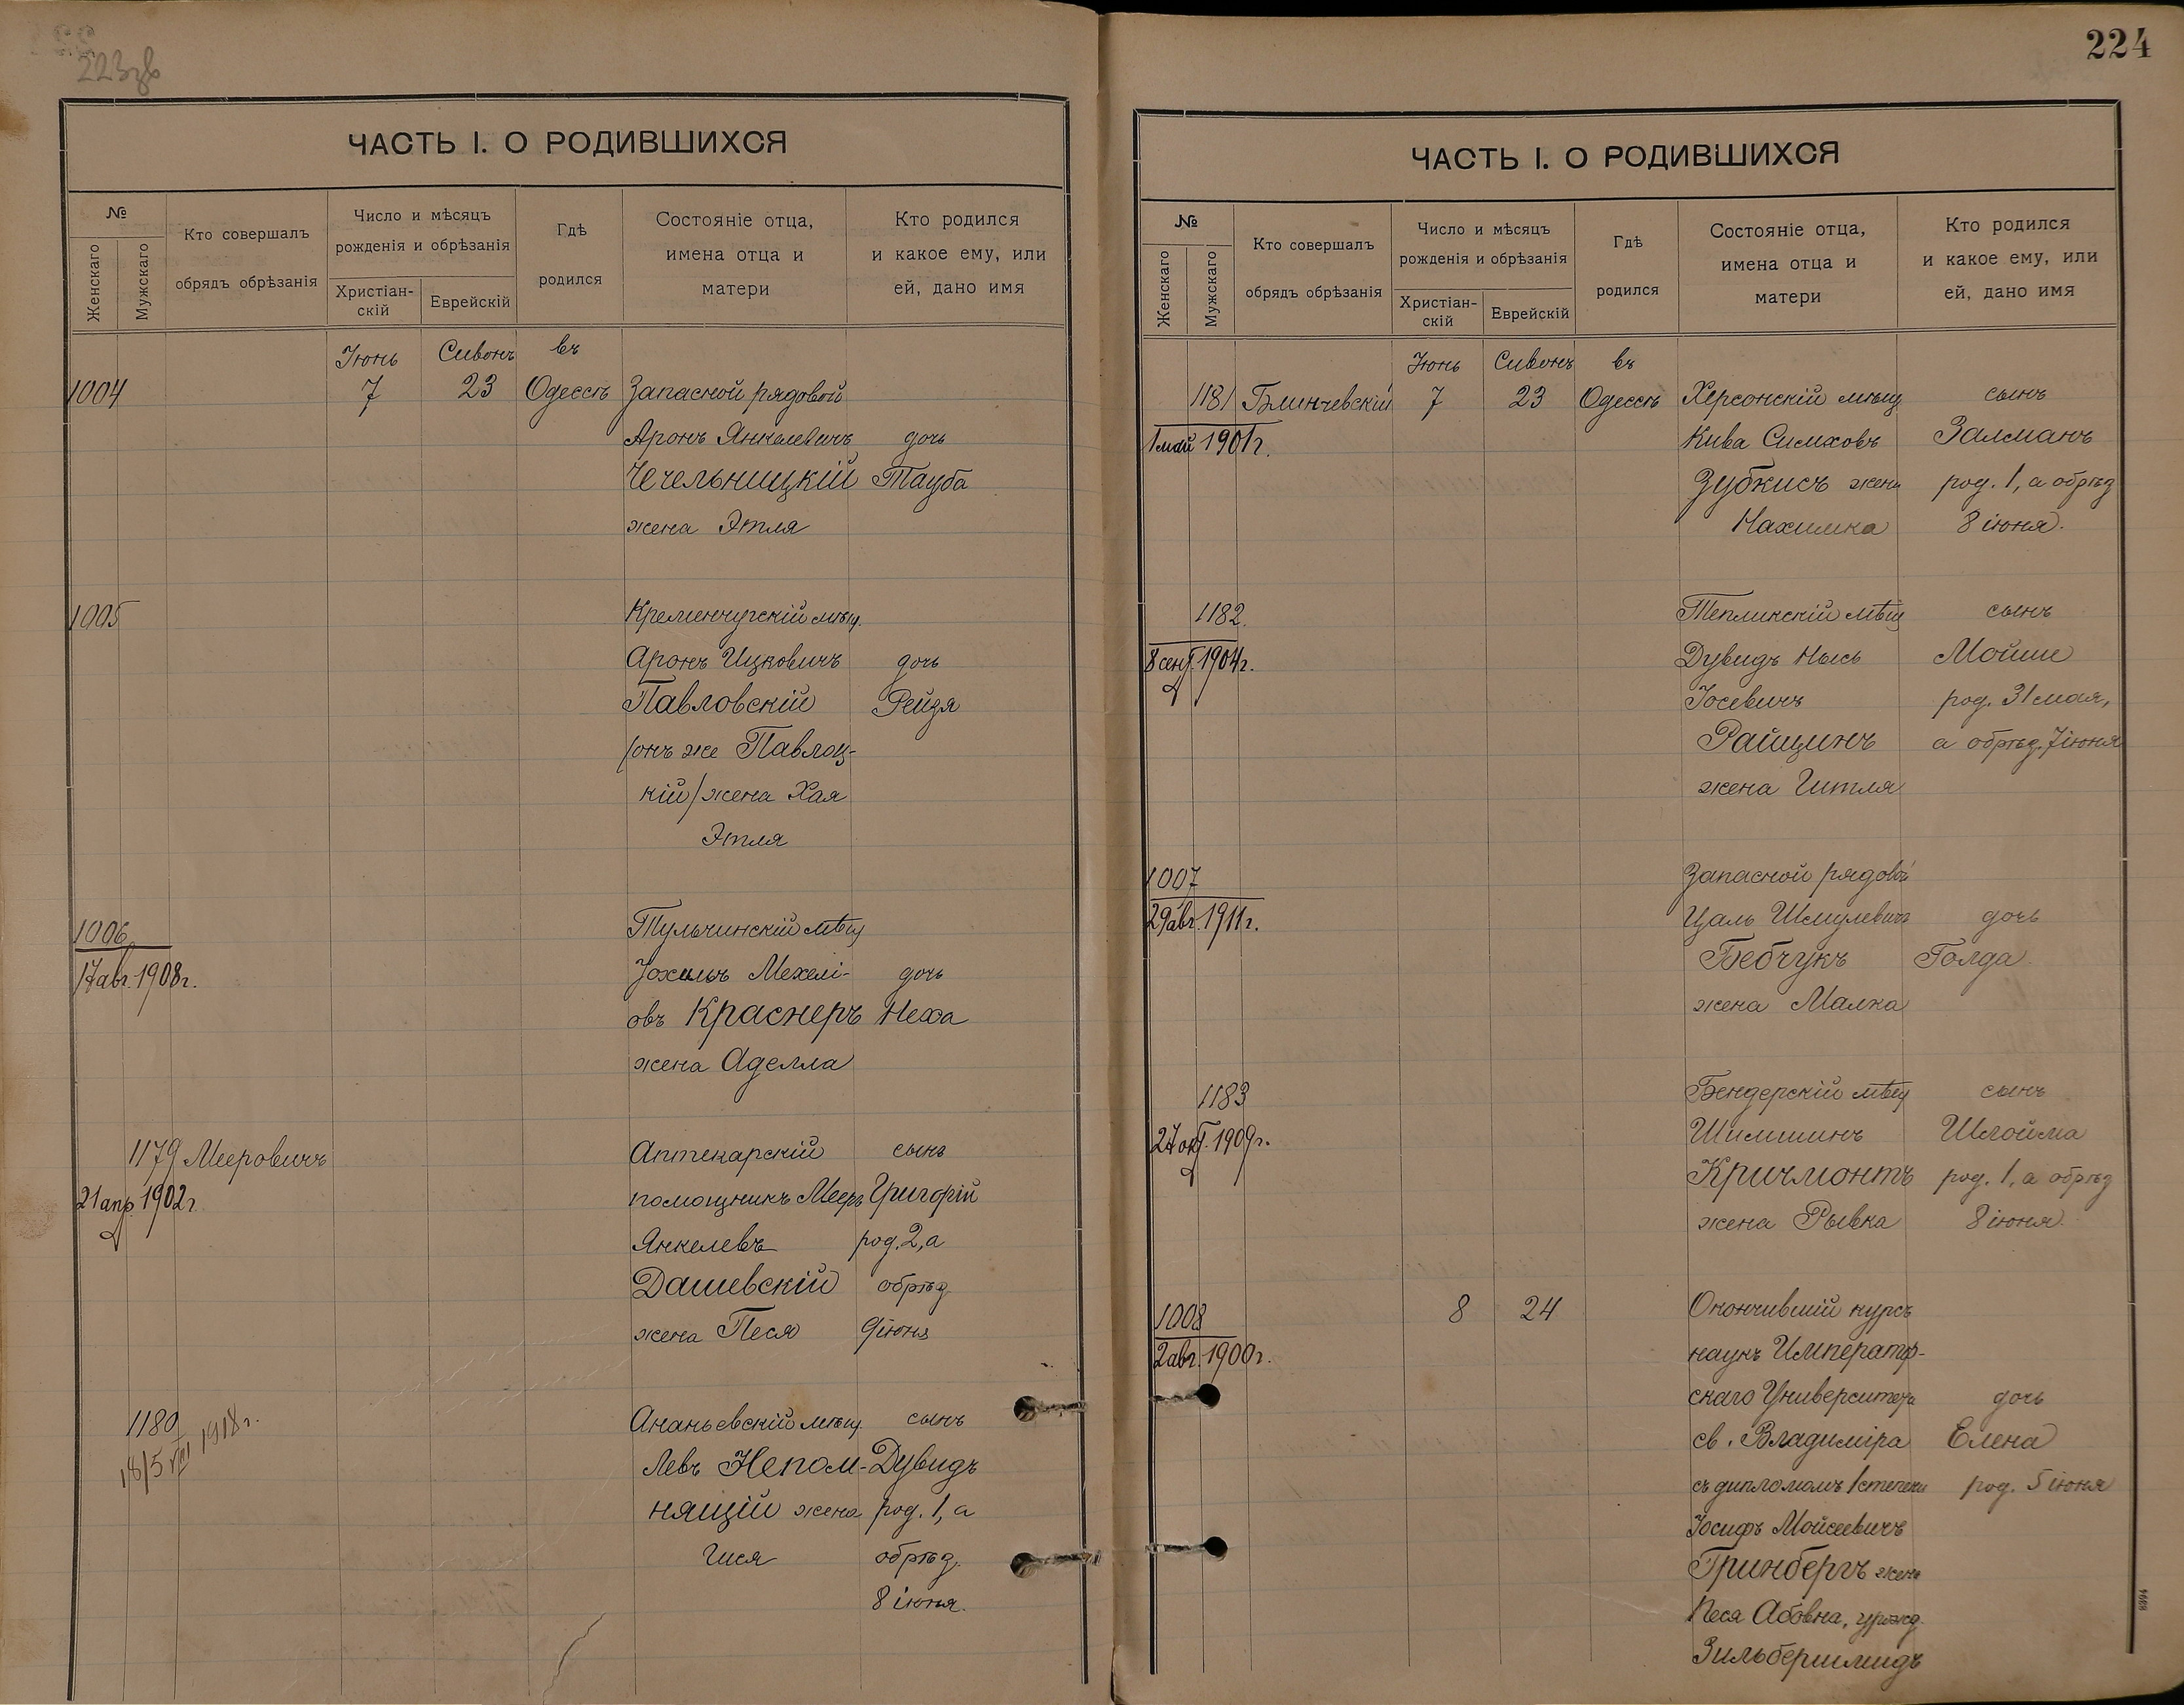 223зв
ЧАСТЬ I. О РОДИВШИХСЯ
№
Женскаго
Мужскаго
Кто совершалъ
обрядъ обрѣзанія
Число и мѣсяцъ
рожденія и обрѣзанія
Христіан-
скій
Еврейскій
Гдѣ
родился
Состояніе отца,
имена отца и
матери
Кто родился
и какое ему, или
ей, дано имя
Іюнь Сивонъ въ
1004 7 23 Одессѣ Запасной рядовой
Аронъ Янкелевичъ дочь
Чечельницкій Тауба
жена Этля
1005 Кременчугскій мѣщ.
Аронъ Ицковичъ дочь
Павловскій Рейзя
/онъ же Павлоц-
кій/ жена Хая
Этля
1006 Тульчинскій мѣщ
17 авг. 1908г. Іохилъ Мехелі- дочь
овъ Краснеръ Неха
жена Аделла
1179 Мееровичъ Аптекарскій сынъ
21 апр. 1902г. помощникъ Мееръ Григорій
Янкелевъ род. 2, а
Дашевскій обрѣз.
жена Песя 9 іюня
1180 Ананьевскій мѣщ. сынъ
18/5 VIII 1918г. Левъ Непом- Дувидъ
нящій жена род. 1, а
Гися обрѣз.
8 іюня.
224
ЧАСТЬ I. О РОДИВШИХСЯ
№
Женскаго
Мужскаго
Кто совершалъ
обрядъ обрѣзанія
Число и мѣсяцъ
рожденія и обрѣзанія
Христіан-
скій
Еврейскій
Гдѣ
родился
Состояніе отца,
имена отца и
матери
Кто родился
и какое ему, или
ей, дано имя
Іюнь Сивонъ въ
1181 Блинчевскій 7 23 Одессѣ Херсонскій мѣщ. сынъ
1 май 1901г. Кива Симховъ Залманъ
Зубкисъ жена род. 1, а обрѣз
Нахимка 8 іюня.
1182. Теплинскій мѣщ сынъ
8 сент. 1904г. Дувидъ Нысь Мойше
Іосевичъ род. 31 мая,
Райцинъ а обрѣз. 7 іюня
жена Гитля
1007 Запасной рядовой
29 авг. 1911г. Цаль Шмулевичъ дочь
Бебчукъ Голда
жена Малка
1183 Бендерскій мѣщ сынъ
27 окт. 1909г. Шимшинъ Шлойма
Кричмонтъ род. 1, а обрѣз
жена Рывка 8 іюня.
1008 8 24 Окончившій курсъ
2 авг. 1900г. наукъ Император-
скаго Университета дочь
св. Владиміра Елена
съ дипломомъ 1 степени род. 5 іюня
Іосифъ Мойсеевичъ
Гринбергъ жена
Песя Абовна, урожд.
Зильбершмидъ